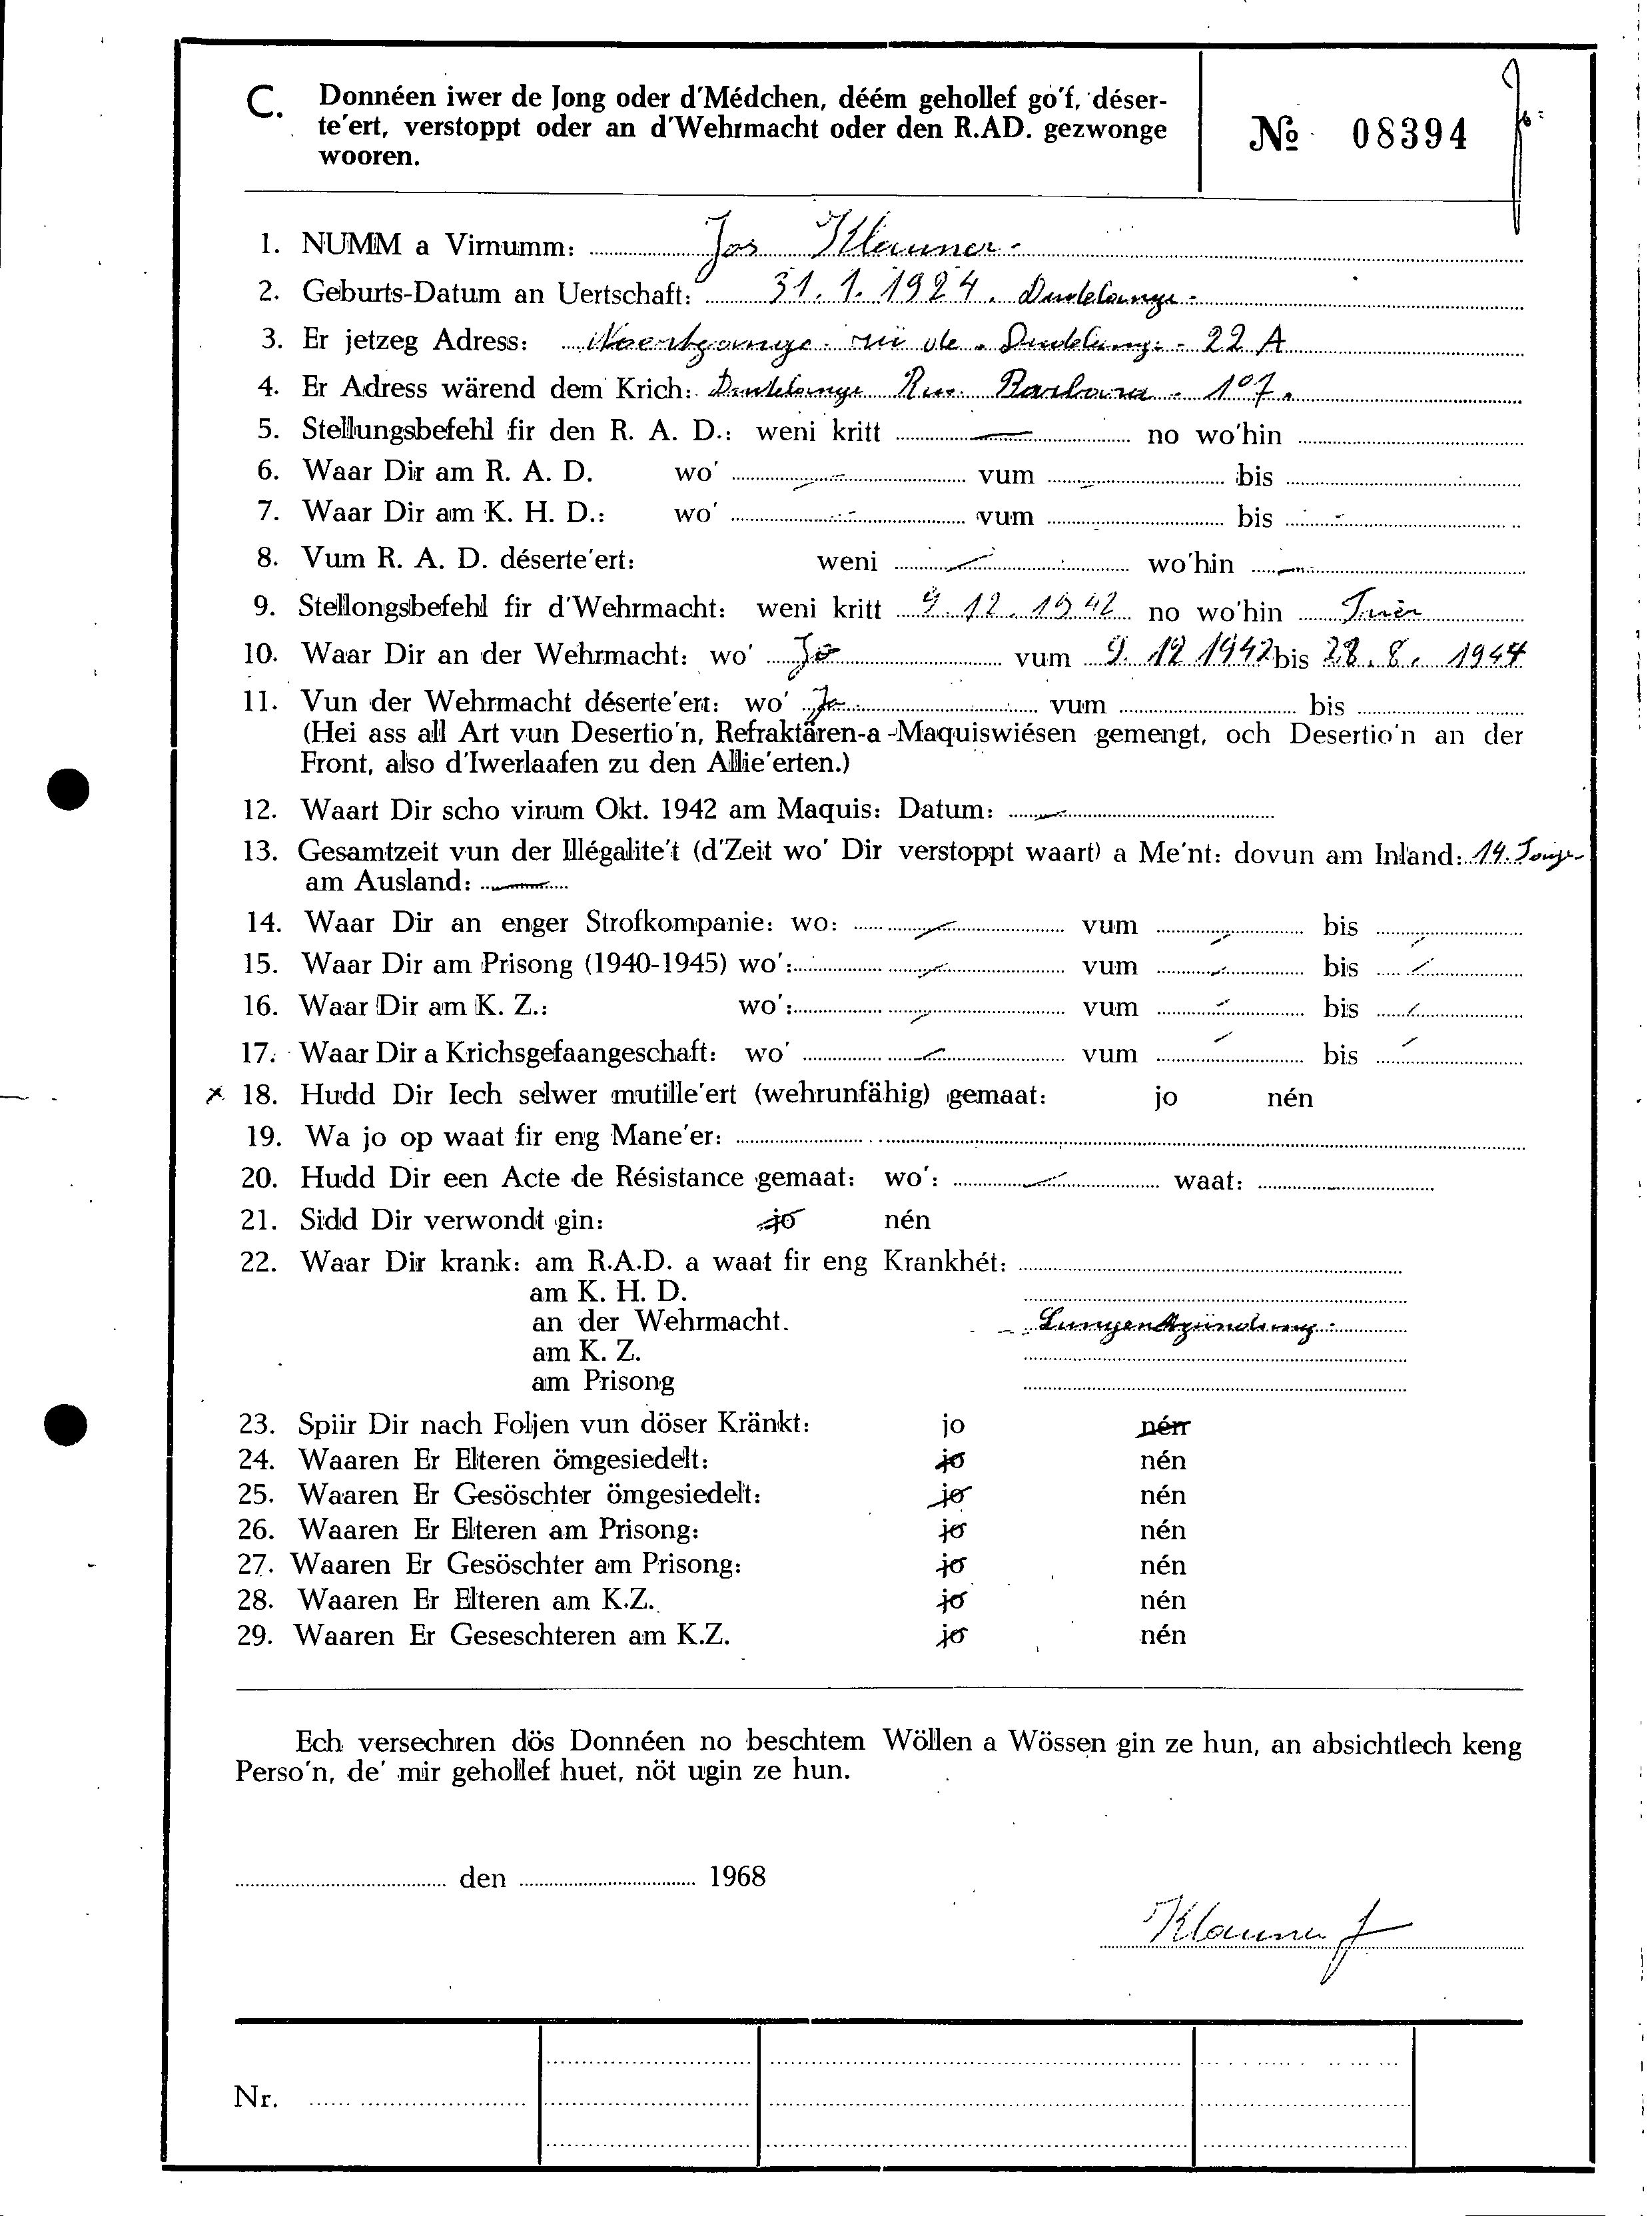 C. Donnéen iwer de Jong oder d'Médchen, déém gehollef go'f, déser-
te'ert, verstoppt oder an d'Wehrmacht oder den R.AD. gezwonge
wooren.
№ 08394
1. NUMM a Virnumm: Jos Klauner
2. Geburts-Datum an Uertschaft: 31. 1. 1924. Dudelange
3. Er jetzeg Adress: Noertzange de Dudelange 22 A
4. Er Adress wärend dem Krich: Dudelange Rue Barbara 107.
5. Stellungsbefehl fir den R. A. D.: weni kritt — no wo'hin
6. Waar Dir am R. A. D. wo' vum bis
7. Waar Dir am K. H. D.: wo' vum bis
8. Vum R. A. D. déserte'ert: weni — wo'hin —
9. Stellongsbefehl fir d'Wehrmacht: weni kritt 9. 12. 1942 no wo'hin Trier
10. Waar Dir an der Wehrmacht: wo' Jo vum 9. 12 1942 bis 28. 8. 1944
11. Vun der Wehrmacht déserte'ert: wo' Jo vum bis
(Hei ass all Art vun Desertio'n, Refraktären-a-Maquiswiésen gemengt, och Desertio'n an der
Front, also d'Iwerlaafen zu den Allie'erten.)
12. Waart Dir scho virum Okt. 1942 am Maquis: Datum: —
13. Gesamtzeit vun der Illégalite't (d'Zeit wo' Dir verstoppt waart) a Me'nt: dovun am Inland: 14
am Ausland: —
14. Waar Dir an enger Strofkompanie: wo: vum bis
15. Waar Dir am Prisong (1940-1945) wo': vum bis
16. Waar Dir am K. Z.: wo': vum bis
17. Waar Dir a Krichsgefaangeschaft: wo' vum bis
x 18. Hudd Dir Iech selwer mutille'ert (wehrunfähig) gemaat: jo nén
19. Wa jo op waat fir eng Mane'er:
20. Hudd Dir een Acte de Résistance gemaat: wo': waat:
21. Sidd Dir verwondt gin: jo nén
22. Waar Dir krank: am R.A.D. a waat fir eng Krankhét:
am K. H. D.
an der Wehrmacht. Lungentzündung
am K. Z.
am Prisong
23. Spiir Dir nach Foljen vun döser Kränkt: jo nén
24. Waaren Er Elteren ömgesiedelt: jo nén
25. Waaren Er Gesöschter ömgesiedelt: jo nén
26. Waaren Er Elteren am Prisong: jo nén
27. Waaren Er Gesöschter am Prisong: jo nén
28. Waaren Er Elteren am K.Z. jo nén
29. Waaren Er Geseschteren am K.Z. jo nén
Ech versechren dös Donnéen no beschtem Wöllen a Wössen gin ze hun, an absichtlech keng
Perso'n, de' mir gehollef huet, nöt ugin ze hun.
den 1968
Klauner J
Nr.